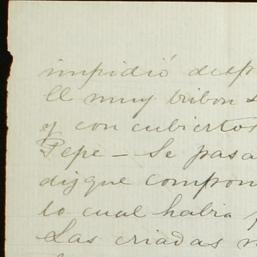 impidió desp
El muy bribon s
y con cubiertos
Pepe - Se pasa
disque compon
lo cual habia p
Las criadas n